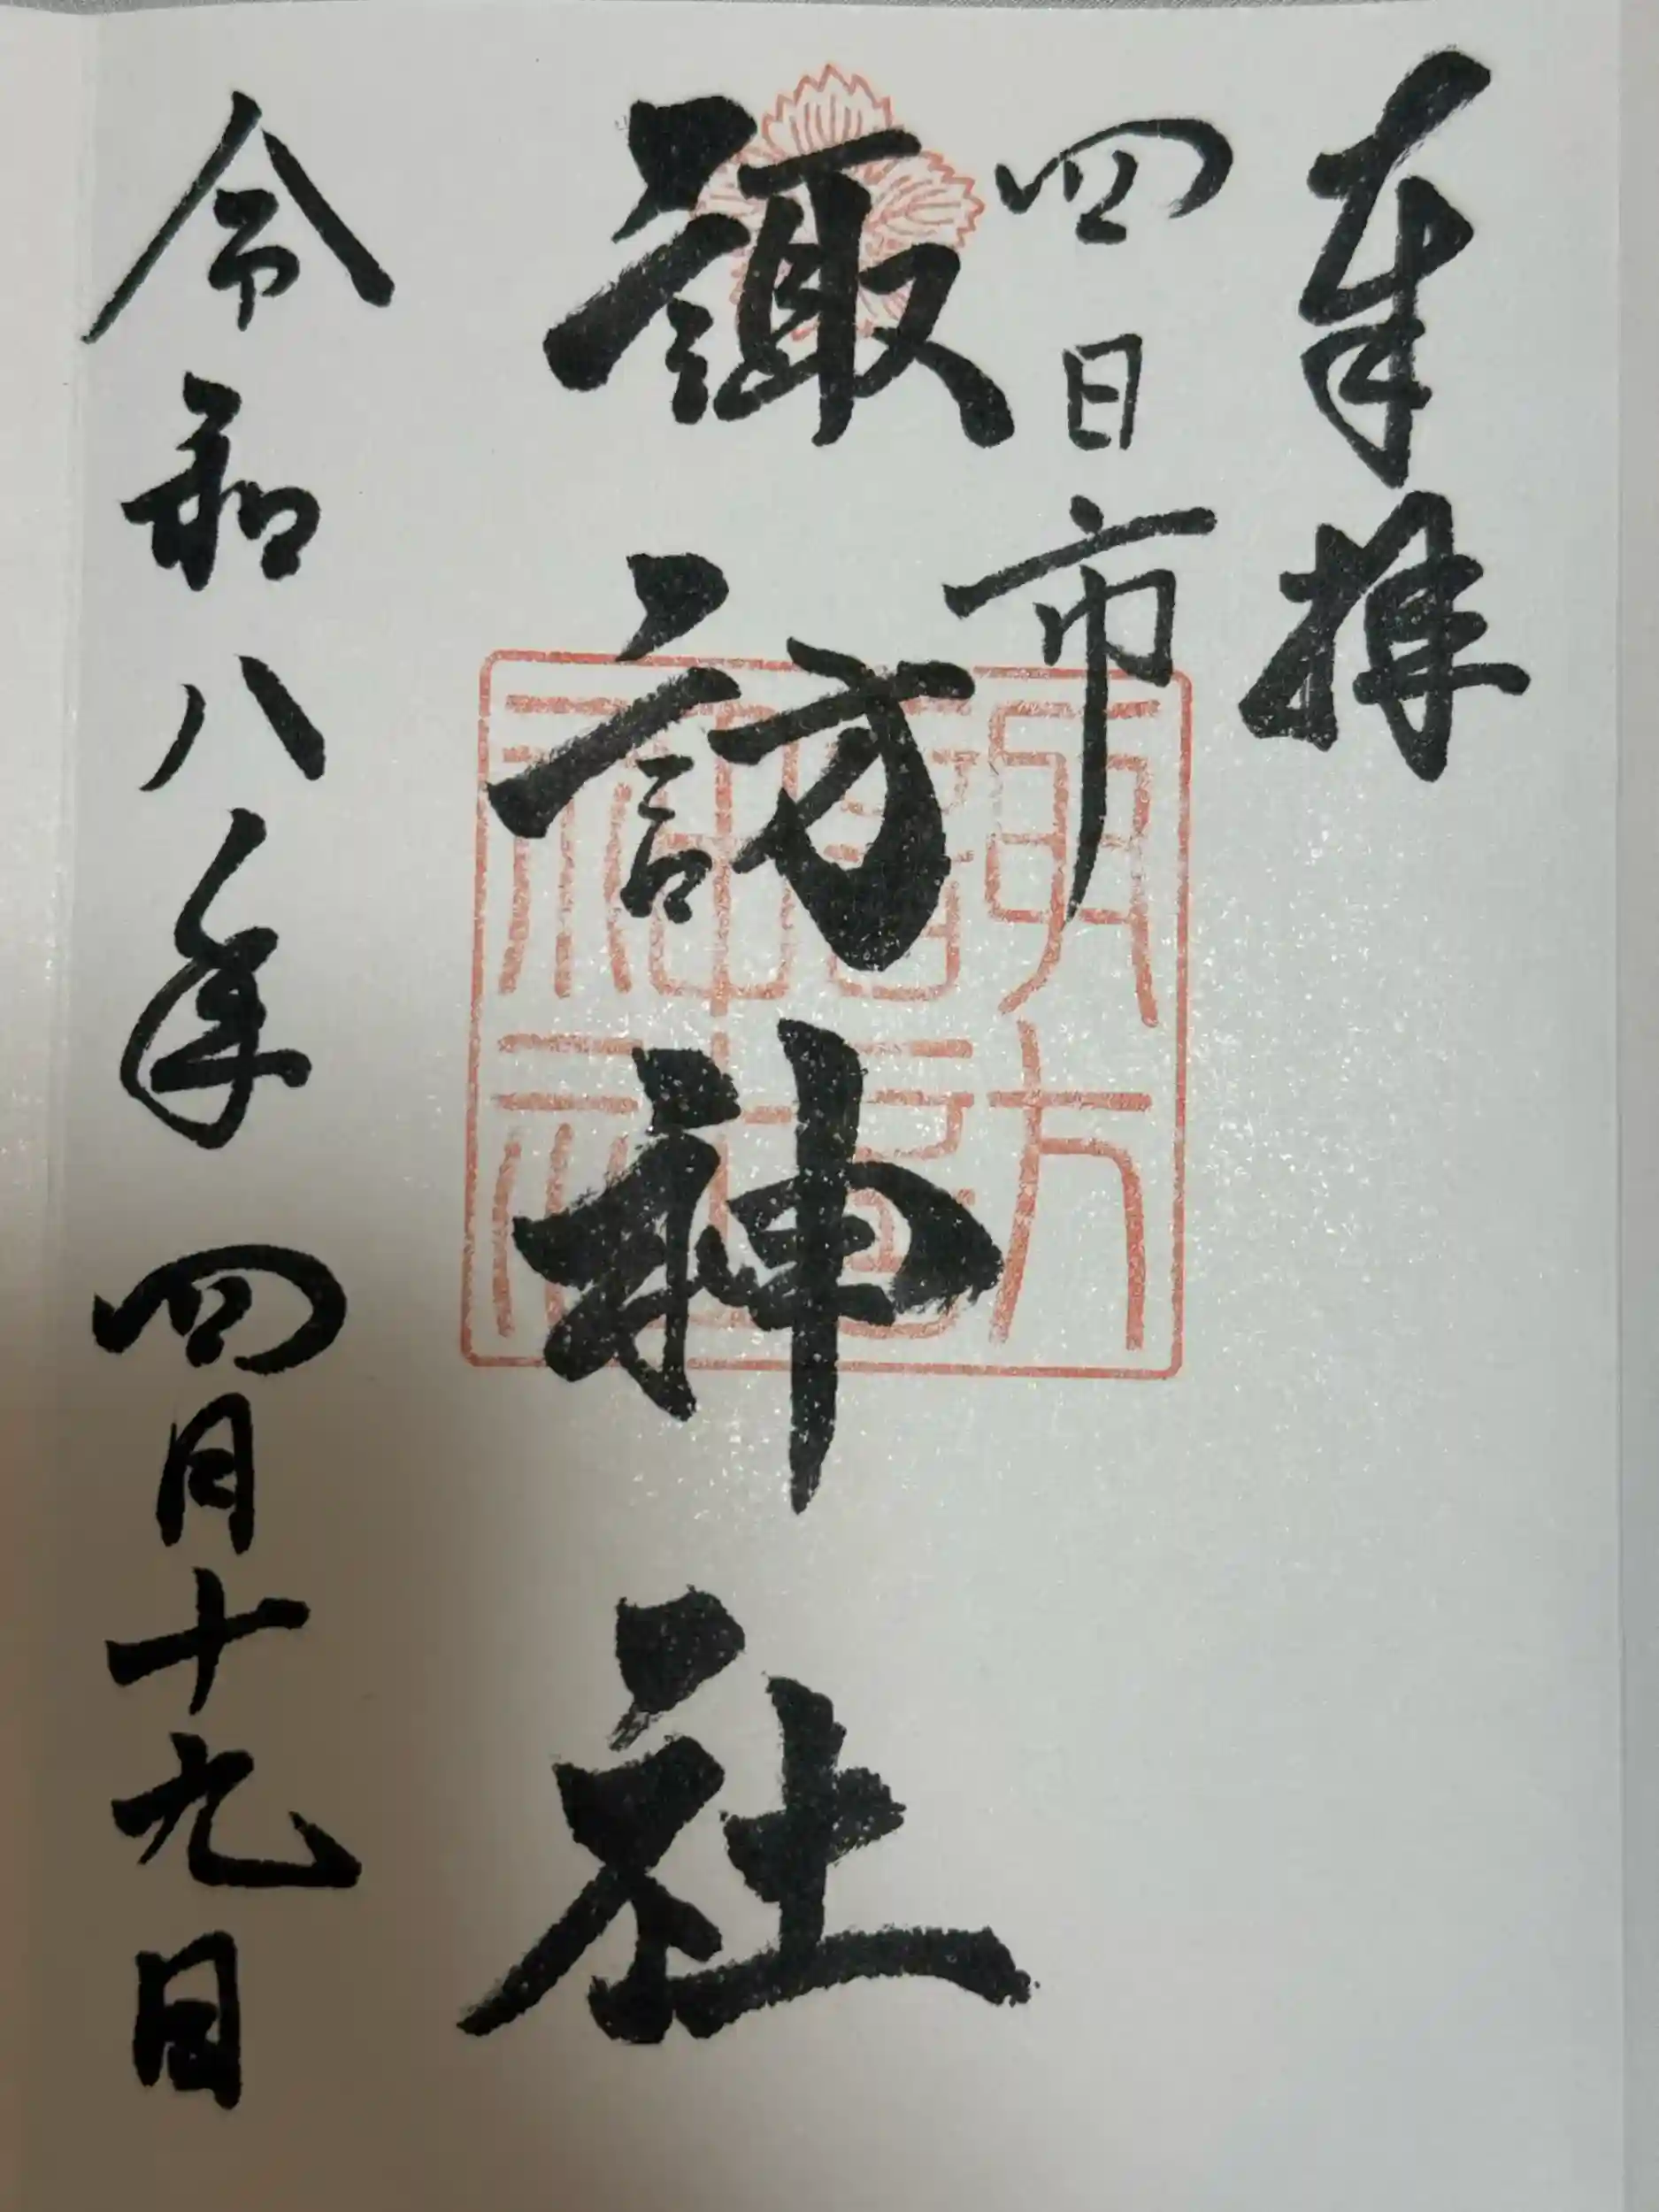 奉拝
四日市
諏訪神社
諏訪神社
令和八年四月十九日